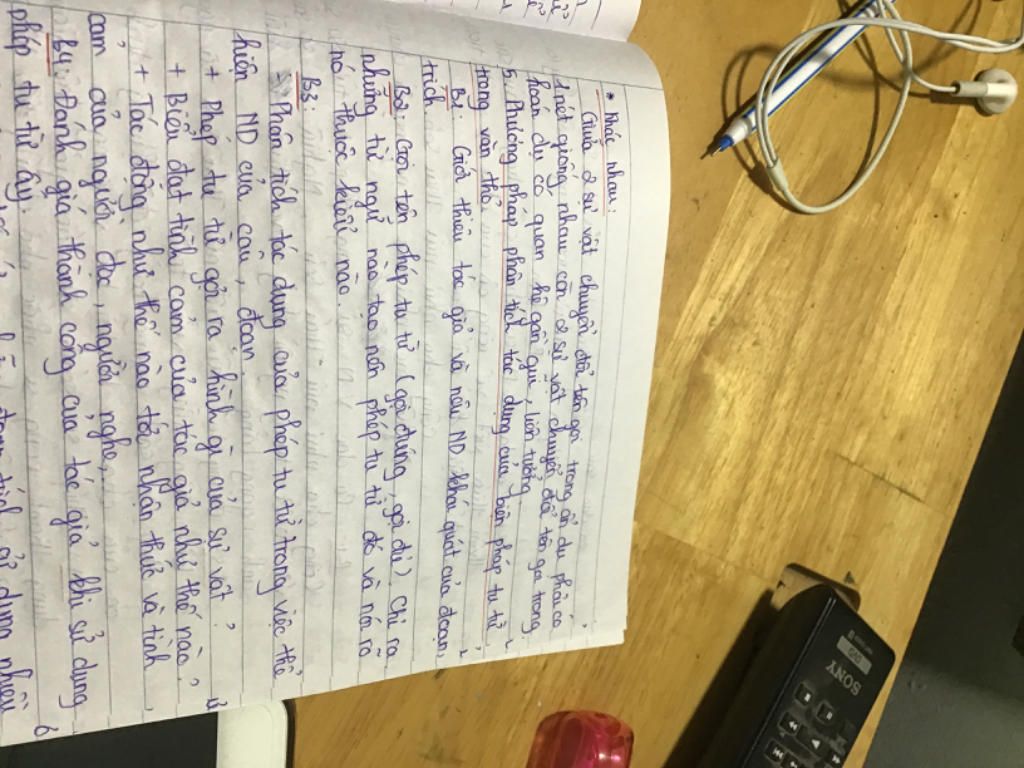 * Khác nhau:
Giữa 2 sự vật chuyển đổi tên gọi trong ẩn dụ phải có
1 nét giống nhau còn 2 sự vật chuyển đổi tên gọi trong
hoán dụ có quan hệ gần gũi, liên tưởng
5. Phương pháp phân tích tác dụng của biện pháp tu từ
trong văn thơ.
B1: Giới thiệu tác giả và nêu ND khái quát của đoạn
trích
B2: Gọi tên phép tu từ (gọi đúng, gọi đủ). Chỉ ra
những từ ngữ nào tạo nên phép tu từ đó và nói rõ
nó thuộc kiểu nào.
B3:
- Phân tích tác dụng của phép tu từ trong việc thể
hiện ND của câu, đoạn
+ Phép tu từ gợi ra hình gì của sự vật?
+ Biểu đạt tình cảm của tác giả như thế nào?
+ Tác động như thế nào tới nhận thức và tình
cảm của người đọc, người nghe,
B4: Đánh giá thành công của tác giả khi sử dụng
phép tu từ ấy.
đoạn trích sử dụng nhiều
SONY